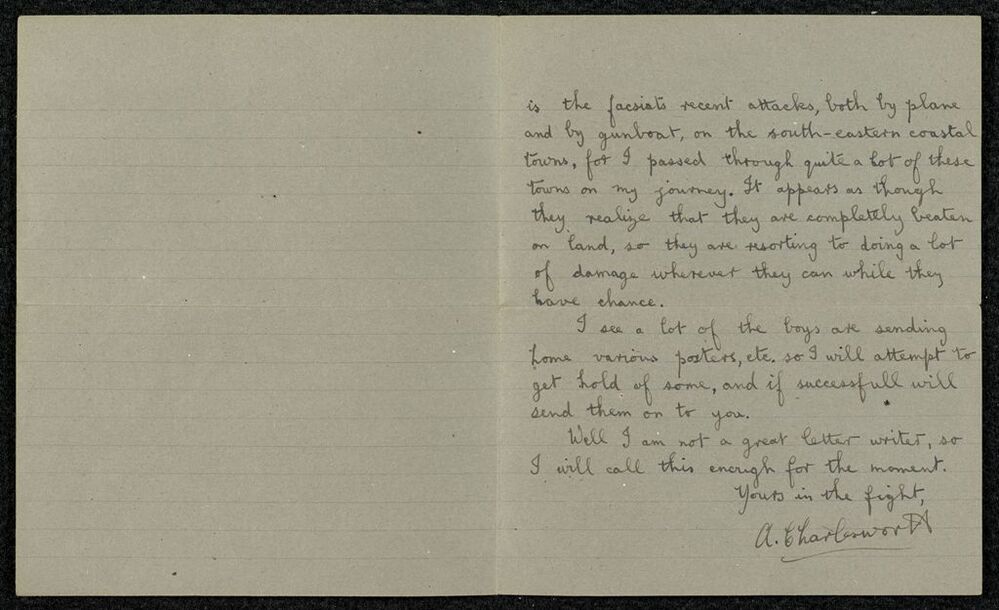 is the facsiats recent attacks, both by plane
and by gunboat, on the south-eastern coastal
towns, for I passed through quite a lot of these
towns on my journey. It appears as though
they realize that they are completely beaten
on land, so they are resorting to doing a lot
of damage wherever they can while they
have chance.
I see a lot of the boys are sending
home various posters, etc. so I will attempt to
get hold of some, and if successfull will
send them on to you.
Well I am not a great letter writer, so
I will call this enough for the moment.
Yours in the fight,
A. Charlesworth